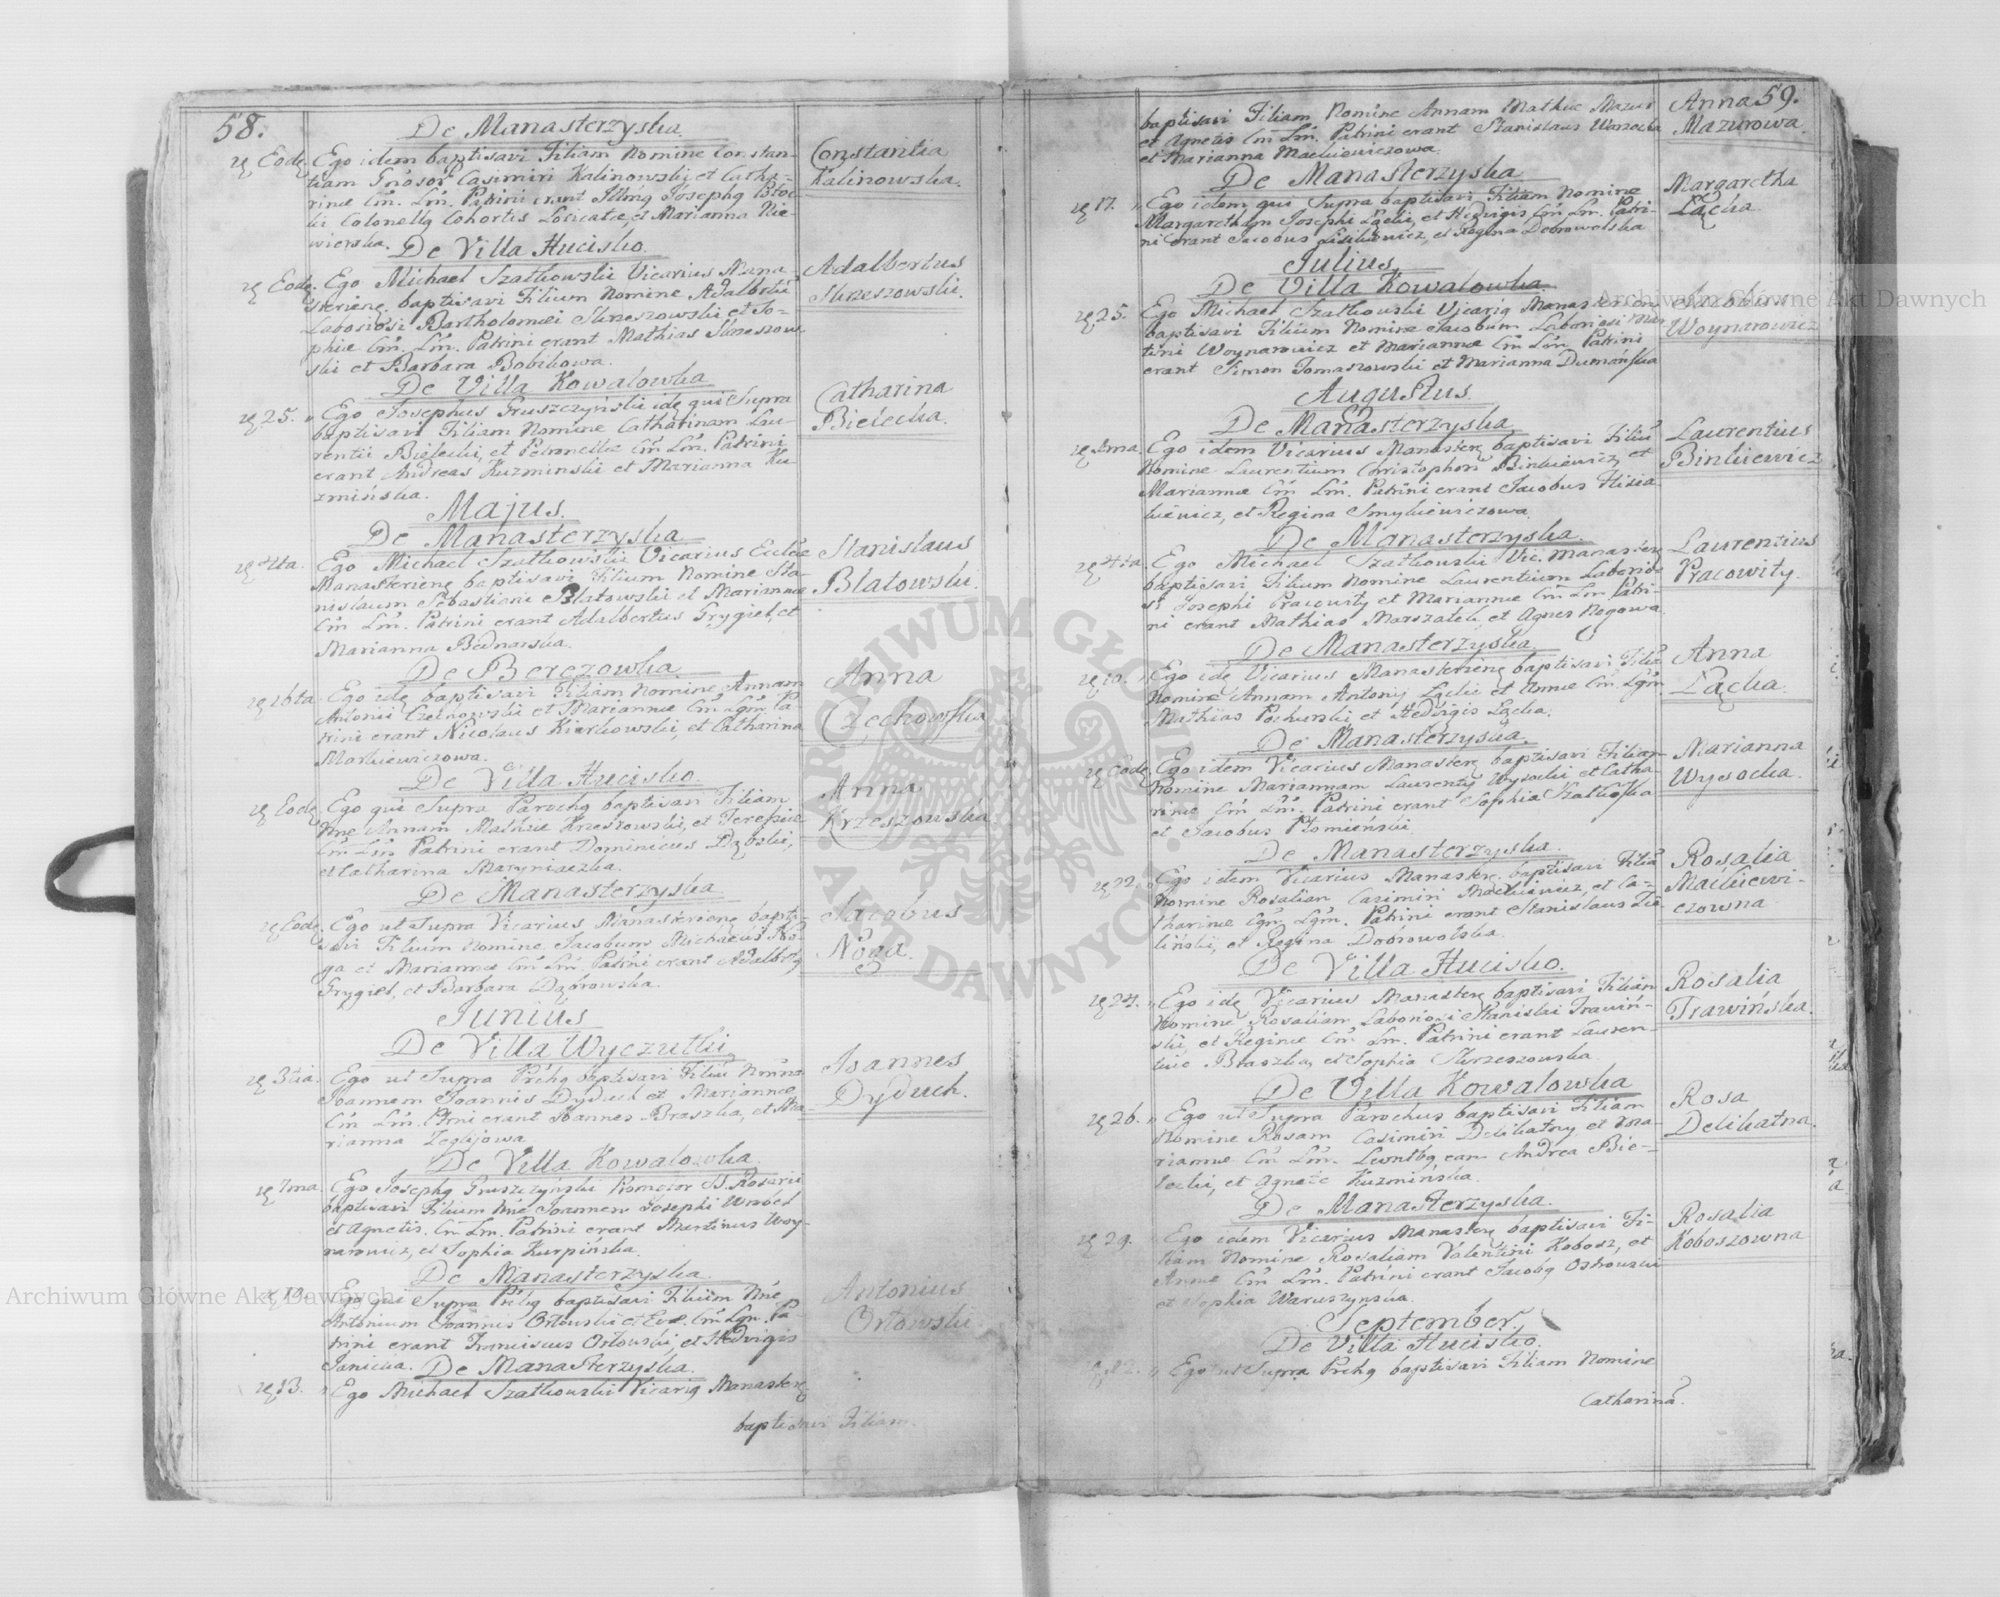 58.
De Manasterzyska
Eode. Ego idem baptisavi Filiam Nomine Constan-
tiam Gnosor Casimiri Kalinowski, et Catha-
rinæ Cm. Lm. Patrini erant Josephg Poto-
cki Colonellg Cohortis et Marianna Nie-
wierska.
Constantia
Kalinowska.
De Villa Hucisko.
Eode. Ego Michael Szatkowski Vicarius Mana-
steriens, baptisavi Filium Nomine Adalbertū
Laboriosi Bartholomæi Skrzeszowski et So-
phiæ Cm. Lm. Patrini erant Mathias Skrzeszow-
ski et Barbara Bobikowa.
Adalbertus
Skrzeszowski.
De Villa Kowalowka
25. Ego Josephus Gruszczyński idē qui Supra
baptisavi Filiam Nomine Catharinam Lau-
rentii Bielecki, et Petronellæ Cm Lm. Patrini
erant Andreas Kuzminski et Marianna Ku-
zmińska.
Catharina
Bielecka.
Majus.
De Manasterzyska
4ta. Ego Michael Szatkowski Vicarius Ecclæ
Manasterienę baptisavi Filium Nomine Sta-
nislaum Sebastiani Blatowski et Mariannæ
Cm Lm. Patrini erant Adalbertus Grygiel, et
Marianna Bednarska.
Stanislaus
Blatowski.
De Berezowka
16ta. Ego idę baptisavi Filiam Nomine Annam
Antonii Czechowski et Mariannæ Cm Lgm. Pa-
trini erant Nicolaus Kierkowski, et Catharina
Markiewiczowa.
Anna
Czechowska
De Villa Hucisko.
Eode Ego qui Supra Parochg baptisavi Filiam
Nne Annam Mathiæ Krzeszowski, et Teresiæ
Cm Lm Patrini erant Dominicus Dąbski,
et Catharina Maryniaczka.
Anna
Krzeszowska
De Manasterzyska
Eode. Ego ut Supra Vicarius Manasterienę bapti-
savi Filium Nomine Jacobum Michaelis No-
ga et Mariannæ Cm Lm. Patrini erant Adalbertg
Grygiel, et Barbara Dąbrowska.
Jacobus
Noga.
Junius
De Villa Wyczułki
3tia. Ego ut Supra Prchg baptisavi Filiū Nomine
Joannem Joannis Dyduch et Mariannæ
Cm Lm. Ptrni erant Joannes Braszka, et Ma-
rianna
Joannes
Dyduch.
De Villa Kowalowka
7ma. Ego Josephg Gruszczyński Promotor SS. Rosarii
baptisavi Filium Nne Joannem Josephi Wrobel
et Agnetis. Cm Lm. Patrini erant Martinus Woy-
narowicz, et Sophia Kurpińska.
De Manasterzyska
10. Ego qui Supra Prchg baptisavi Filium Nne
Antonium Joannis Orłowski et Evæ Cm Lgm. Pa-
trini erant Franciscus Orłowski, et Hedvigis
Janicka.
Antonius
Orłowski.
De Manasterzyska.
13. Ego Michael Szatkowski Vicarig Manasterę
baptisavi Filiam.
59.
baptisavi Filiam Nomine Annam Mathiæ Mazur
et Agnetis Cm Lm. Patrini erant Stanislaus Warzecha
et Marianna Mackiewiczowa.
Anna
Mazurowa.
De Manasterzyska
17. Ego idem qui Supra baptisavi Filiam Nomine
Margaretham Josephi Łącki, et Hedvigis Cm Lm. Patri-
ni erant Jacobus et Regina Dobrowolska
Margaretha
Łącka
Julius
De Villa Kowalowka
25. Ego Michael Szatkowski Vicarig Manasterien
baptisavi Filium Nomine Jacobum Laboriosi Mar-
tini Woynarowicz et Mariannæ Cm Lm Patrini
erant Simon Tomaszowski et Marianna Dumańska
Jacobus
Woynarowicz
Augustus.
De Manasterzyska
Ego idem Vicarius Manasterę baptisavi Filiū
Nomine Laurentium Christophori Binkiewicz et
Mariannæ Cm Lm. Patrini erant Jacobus
et Regina Smykiewiczowa.
Laurentius
Binkiewicz
De Manasterzyska.
4ta Ego Michael Szatkowski Vic. Manasterę
baptisavi Filium Nomine Laurentium Laborio-
si Josephi Pracowity et Mariannæ Cm Lm Patri-
ni erant Mathias Marszałek, et Agnes Nogowa.
Laurentius
Pracowity.
De Manasterzyska.
10. Ego idę Vicarius Manasterienę baptisavi Filiā
Nomine Annam Antony Łącki et Annæ Cm Lgm.
Mathias Pochurski et Hedvigis Łącka.
Anna
Łącka.
De Manasterzyska.
Eode Ego idem Vicarius Manasterę baptisavi Filiam
Nomine Mariannam Laurentij Wysocki et Catha-
rinæ Cm Lm. Patrini erant Sophia Szatkoska
et Jacobus Płomieński
Marianna
Wysocka.
De Manasterzyska.
22. Ego idem Vicarius Manasterę baptisavi Filiā
Nomine Rosaliam Casimiri Mackiewicz, et Ca-
tharinæ Cgm Lgm. Patrini erant Stanislaus Zie-
liński, et Regina Dobrowolska.
Rosalia
Mackiewi-
czowna
De Villa Hucisko.
24. Ego idę Vicarius Manasterę baptisavi Filiam
Nomine Rosaliam Laboriosi Stanislai Trawiń-
ski, et Reginæ Cm Lm. Patrini erant Lauren-
tius Braszka et Sophia Skrzeszowska.
Rosalia
Trawińska.
De Villa Kowalowka
26. Ego ut Supra Parochus baptisavi Filiam
Nomine Rosam Casimiri Delikatny, et Ma-
riannæ Cm Lm. Levntbg eam Andrea Bie-
lecki, et Agnaæ Kuzmińska.
Rosa
Delikatna.
De Manasterzyska.
29. Ego idem Vicarius Manasterę baptisavi Fi-
liam Nomine Rosaliam Valentini Kobosz, et
Annæ Cm Lm. Patrini erant Jacobg Ostrowski
et Sophia Waruszynska.
Rosalia
Koboszowna
September.
De Villa Hucisko.
Ego ut Supra Prchg baptisavi Filiam Nomine
Catharinā.
Archiwum Główne Akt Dawnych
Archiwum Główne Akt Dawnych
ARCHIWUM GŁÓWNE AKT DAWNYCH